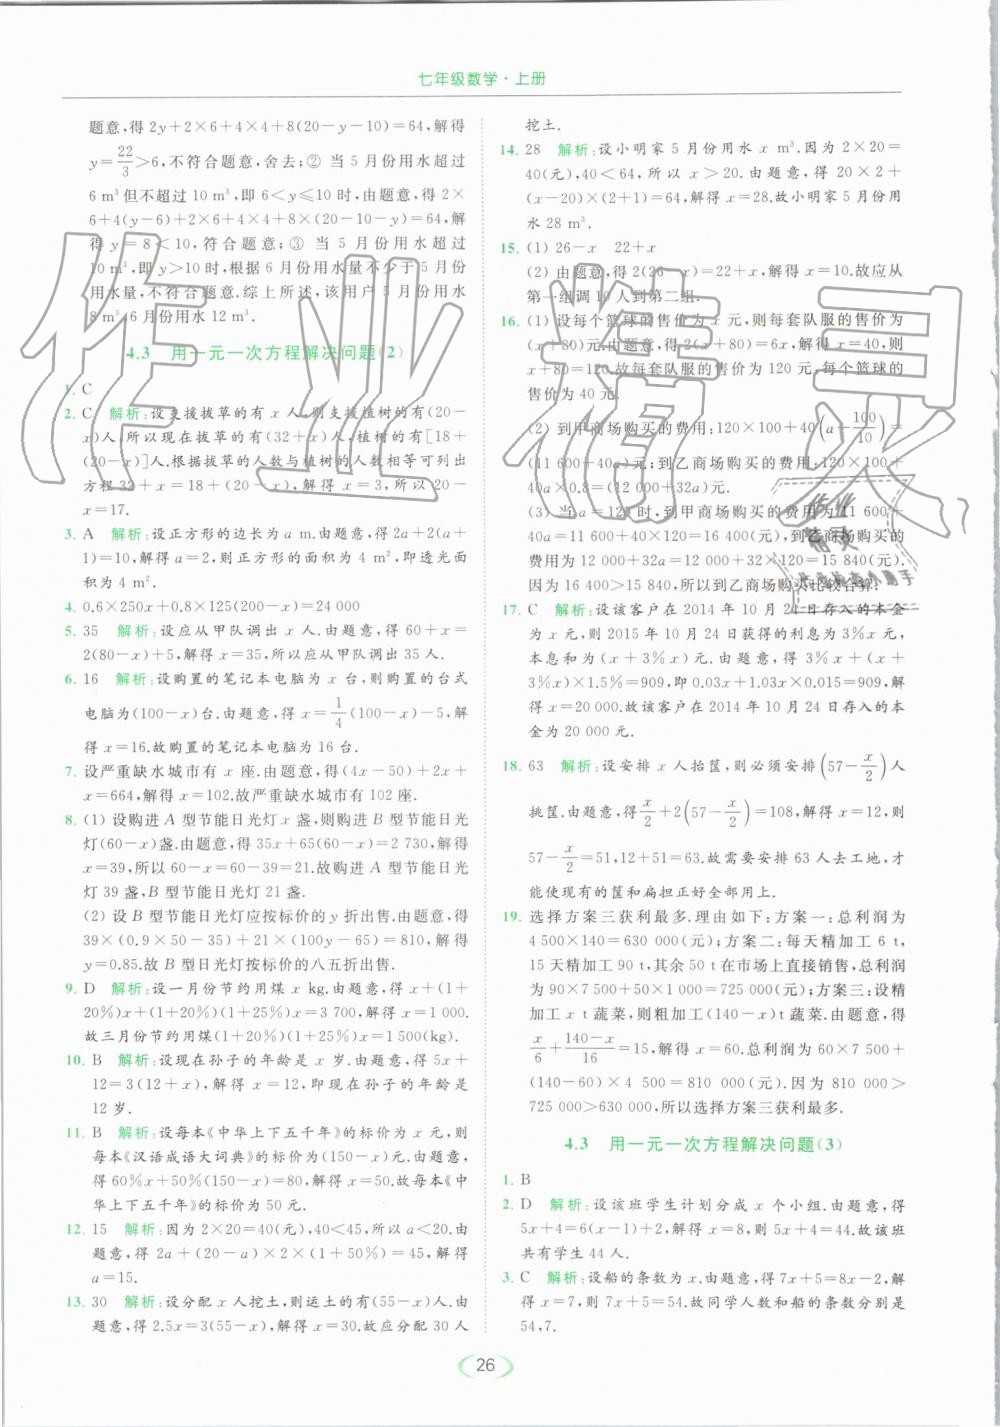 七年级数学·上册
题意,得 2y+2×6+4×4+8(20-y-10)=64,解得
y=22/3>6,不符合题意,舍去;② 当 5 月份用水超过
6 m³ 但不超过 10 m³,即 6<y≤10 时,由题意,得 2×
6+4(y-6)+2×6+4×4+8(20-10-y)=64,解
得 y=8<10,符合题意;③ 当 5 月份用水超过
10 m³,即 y>10 时,根据 6 月份用水量不少于 5 月份
用水量,不符合题意.综上所述,该用户 5 月份用水
8 m³,6 月份用水 12 m³.
4.3 用一元一次方程解决问题(2)
1. C
2. C 解析:设支援拔草的有 x 人,则支援植树的有(20-
x)人,所以现在拔草的有(32+x)人,植树的有[18+
(20-x)]人.根据拔草的人数与植树的人数相等可列出
方程 32+x=18+(20-x),解得 x=3.则 20-x=20-3=
17.
3. A 解析:设正方形的边长为 a m.由题意,得 2a+2(a+
1)=10,解得 a=2,则正方形的面积为 4 m²,即透光面
积为 4 m².
4. 0.6×250x+0.8×125(250-x)=24 000
5. 35 解析:设应从甲队调出 x 人.由题意,得 60+x=
2(80-x)+5,解得 x=35,所以应从甲队调出 35 人.
6. 16 解析:设购置的笔记本电脑为 x 台,则购置的台式
电脑为(100-x)台.由题意,得 x=1/4(100-x)-5,解
得 x=16.故购置的笔记本电脑为 16 台.
7. 设严重缺水城市有 x 座.由题意,得(4x-50)+2x+
x=664,解得 x=102.故严重缺水城市有 102 座.
8. (1) 设购进 A 型节能日光灯 x 盏,则购进 B 型节能日光
灯(60-x)盏.由题意,得 35x+65(60-x)=2 730,解得
x=39,所以 60-x=60-39=21.故购进 A 型节能日光
灯 39 盏,B 型节能日光灯 21 盏.
(2) 设 B 型节能日光灯应按标价的 y 折出售.由题意,得
39×(0.9×50-35)+21×(100y-65)=810,解得
y=0.85.故 B 型节能日光灯按标价的八五折出售.
9. D 解析:设一月份节约用煤 x kg.由题意,得 x+(1+
20%)x+(1+20%)(1+25%)x=3 700,解得 x=1 000.
故三月份节约用煤(1+20%)(1+25%)x=1 500(kg).
10. B 解析:设现在孙子的年龄是 x 岁.由题意,得 5x+
12=3(x+12),解得 x=12,即现在孙子的年龄是
12 岁.
11. B 解析:设每本《中华上下五千年》的标价为 x 元,则
每本《汉语成语大词典》的标价为(150-x)元.由题意,
得 50%x+60%(150-x)=80,解得 x=50.故每本《中
华上下五千年》的标价为 50 元.
12. 15 解析:因为 2×20=40(元),40<45,所以 a<20.由
题意,得 2a+(20-a)×2×(1+50%)=45,解得
a=15.
13. 30 解析:设分配 x 人挖土,则运土的有(55-x)人.由
题意,得 2.5x=3(55-x),解得 x=30.故应分配 30 人
挖土.
14. 28 解析:设小明家 5 月份用水 x m³.因为 2×20=
40(元),40<64,所以 x>20.由题意,得 20×2+
(x-20)×(2+1)=64,解得 x=28.故小明家 5 月份用
水 28 m³.
15. (1) 26-x 22+x
(2) 由题意,得 2(26-x)=22+x,解得 x=10.故应从
第一组调 10 人到第二组.
16. (1) 设每个篮球的售价为 x 元,则每套队服的售价为
(x+80)元.由题意,得 2(x+80)=6x,解得 x=40,则
x+80=120.故每套队服的售价为 120 元,每个篮球的
售价为 40 元.
(2) 到甲商场购买的费用:120×100+40(a-100/10)=
(11 600+40a)元;到乙商场购买的费用:120×100+
40a×0.8=(12 000+32a)元.
(3) 当 a=120 时,到甲商场购买的费用为 11 600+
40a=11 600+40×120=16 400(元),到乙商场购买的
费用为 12 000+32a=12 000+32×120=15 840(元).
因为 16 400>15 840,所以到乙商场购买比较合算.
17. C 解析:设该客户在 2014 年 10 月 24 日存入的本金
为 x 元,则 2015 年 10 月 24 日获得的利息为 3%x 元,
本息和为(x+3%x)元.由题意,得 3%x+(x+
3%x)×1.5%=909,即 0.03x+1.03x×0.015=909,解
得 x=20 000.故该客户在 2014 年 10 月 24 日存入的本
金为 20 000 元.
18. 63 解析:设安排 x 人抬筐,则必须安排(57-x/2)人
挑筐.由题意,得 x/2+2(57-x/2)=108,解得 x=12,则
57-x/2=51,12+51=63.故需要安排 63 人去工地,才
能使现有的筐和扁担正好全部用上.
19. 选择方案三获利最多.理由如下:方案一:总利润为
4 500×140=630 000(元);方案二:每天精加工 6 t,
15 天精加工 90 t,其余 50 t 在市场上直接销售,总利润
为 7 500×90+50×1 000=725 000(元);方案三:设精
加工 x t 蔬菜,则粗加工(140-x) t 蔬菜.由题意,得
x/6+140-x/16=15,解得 x=60.总利润为 60×7 500+
(140-60)×4 500=810 000(元).因为 810 000>
725 000>630 000,所以选择方案三获利最多.
4.3 用一元一次方程解决问题(3)
1. B
2. D 解析:设该班学生计划分成 x 个小组.由题意,得
5x+4=6(x-1)+2,解得 x=8,则 5x+4=44.故该班
共有学生 44 人.
3. C 解析:设船的条数为 x.由题意,得 7x+5=8x-2,解
得 x=7,则 7x+5=54.故同学人数和船的条数分别是
54,7.
26
作业精灵